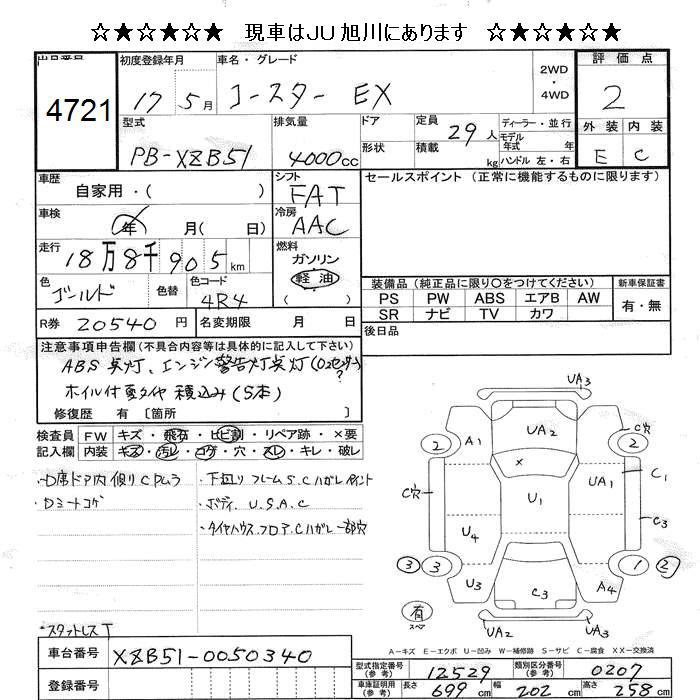 ☆★☆★☆★ 現車はJU旭川にあります ☆★☆★☆★
出品番号 4721
初度登録年月 17 5月
車名・グレード コースター EX
2WD ・ 4WD
評価点 2
外装 E 内装 C
型式 PB-XZB51
排気量 4000cc
ドア 形状
定員 29人 積載 kg
ディーラー・並行
モデル年式 年
ハンドル 左・右
車歴 自家用・( )
シフト FAT
セールスポイント (正常に機能するものに限ります)
車検 年 月(日)
冷房 AAC
走行 18万8千905km
燃料 ガソリン 軽油
色 ゴールド 色替 色コード 4R4
R券 20540円 名変期限 月 日
装備品(純正品に限り〇をつけてください) 新車保証書
PS PW ABS エアB AW 有・無
SR ナビ TV カワ
後日品
注意事項申告欄(不具合内容等は具体的に記入して下さい)
ABS点灯、エンジン警告灯点灯(O2センサー?)
ホイル付夏タイヤ積込み(5本)
修復歴 有 〔箇所 〕
検査員記入欄
FW キズ・飛石・ヒビ割・リペア跡・×要
内装 キズ・汚レ・コゲ・穴・スレ・キレ・破レ
・D席ドア内側リCPムラ
・Dシートコゲ
・下廻リフレームS.Cハガレペイント
・ボディ.U.S.A.C
・タイヤハウス.フロア.Cハガレ一部穴
*スタットレスT
UA3
UA2
A1
2
2
C穴
×
UA1
C1
C穴
U1
U4
C3
3
3
1
2
U3
C3
A4
有
スペア
UA2
UA3
A-キズ E-エクボ U-凹み W-補修跡 S-サビ C-腐食 XX-交換済
車台番号 XZB51-0050340
登録番号
型式指定番号(参考) 12529 類別区分番号(参考) 0207
車庫証明用(参考) 長さ 699cm 幅 202cm 高さ 258cm